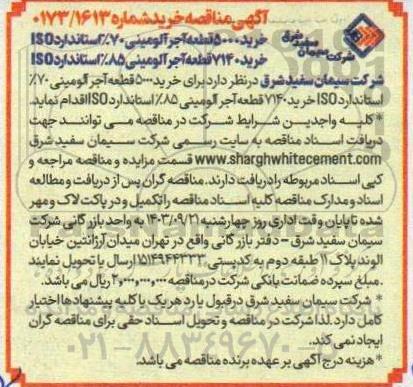 آگهی مناقصه خرید شماره ۰۱۷۳/۱۶۱۳
خرید ۵۰۰۰ قطعه آجر آلومینی ۷۰٪ استاندارد ISO
خرید ۷۱۴۰ قطعه آجر آلومینی ۸۵٪ استاندارد ISO
سیمان سفید شرق
شرکت سیمان سفید شرق در نظر دارد برای خرید ۵۰۰۰ قطعه آجر آلومینی ۷۰٪
استاندارد ISO خرید ۷۱۴۰ قطعه آجر آلومینی ۸۵٪ استاندارد ISO اقدام نماید.
* کلیه واجدین شرایط شرکت در مناقصه می توانند جهت
دریافت اسناد مناقصه به سایت رسمی شرکت سیمان سفید شرق
www.sharghwhitecement.com قسمت مزایده و مناقصه مراجعه و
کپی اسناد مربوطه را دریافت دارند. مناقصه گران پس از دریافت و مطالعه
اسناد و مدارک مناقصه کلیه اسناد مناقصه را تکمیل و در پاکت لاک و مهر
شده تا پایان وقت اداری روز چهارشنبه ۱۴۰۳/۰۹/۲۱ به واحد بازرگانی شرکت
سیمان سفید شرق - دفتر بازرگانی واقع در تهران میدان آرژانتین خیابان
الوند پلاک ۱۱ طبقه دوم به کدپستی ۱۵۱۴۹۴۴۳۳۳ ارسال یا تحویل نمایند
.مبلغ سپرده ضمانت بانکی شرکت در مناقصه ۲،۰۰۰،۰۰۰،۰۰۰ ریال می باشد.
* شرکت سیمان سفید شرق در قبول یا رد هر یک یا کلیه پیشنهادها اختیار
کامل دارد. لذا شرکت در مناقصه و تحویل اسناد حقی برای مناقصه گران
ایجاد نمی کند.
* هزینه درج آگهی بر عهده برنده مناقصه می باشد.
۰۲۱-۸۸۳۴۹۶۷۰